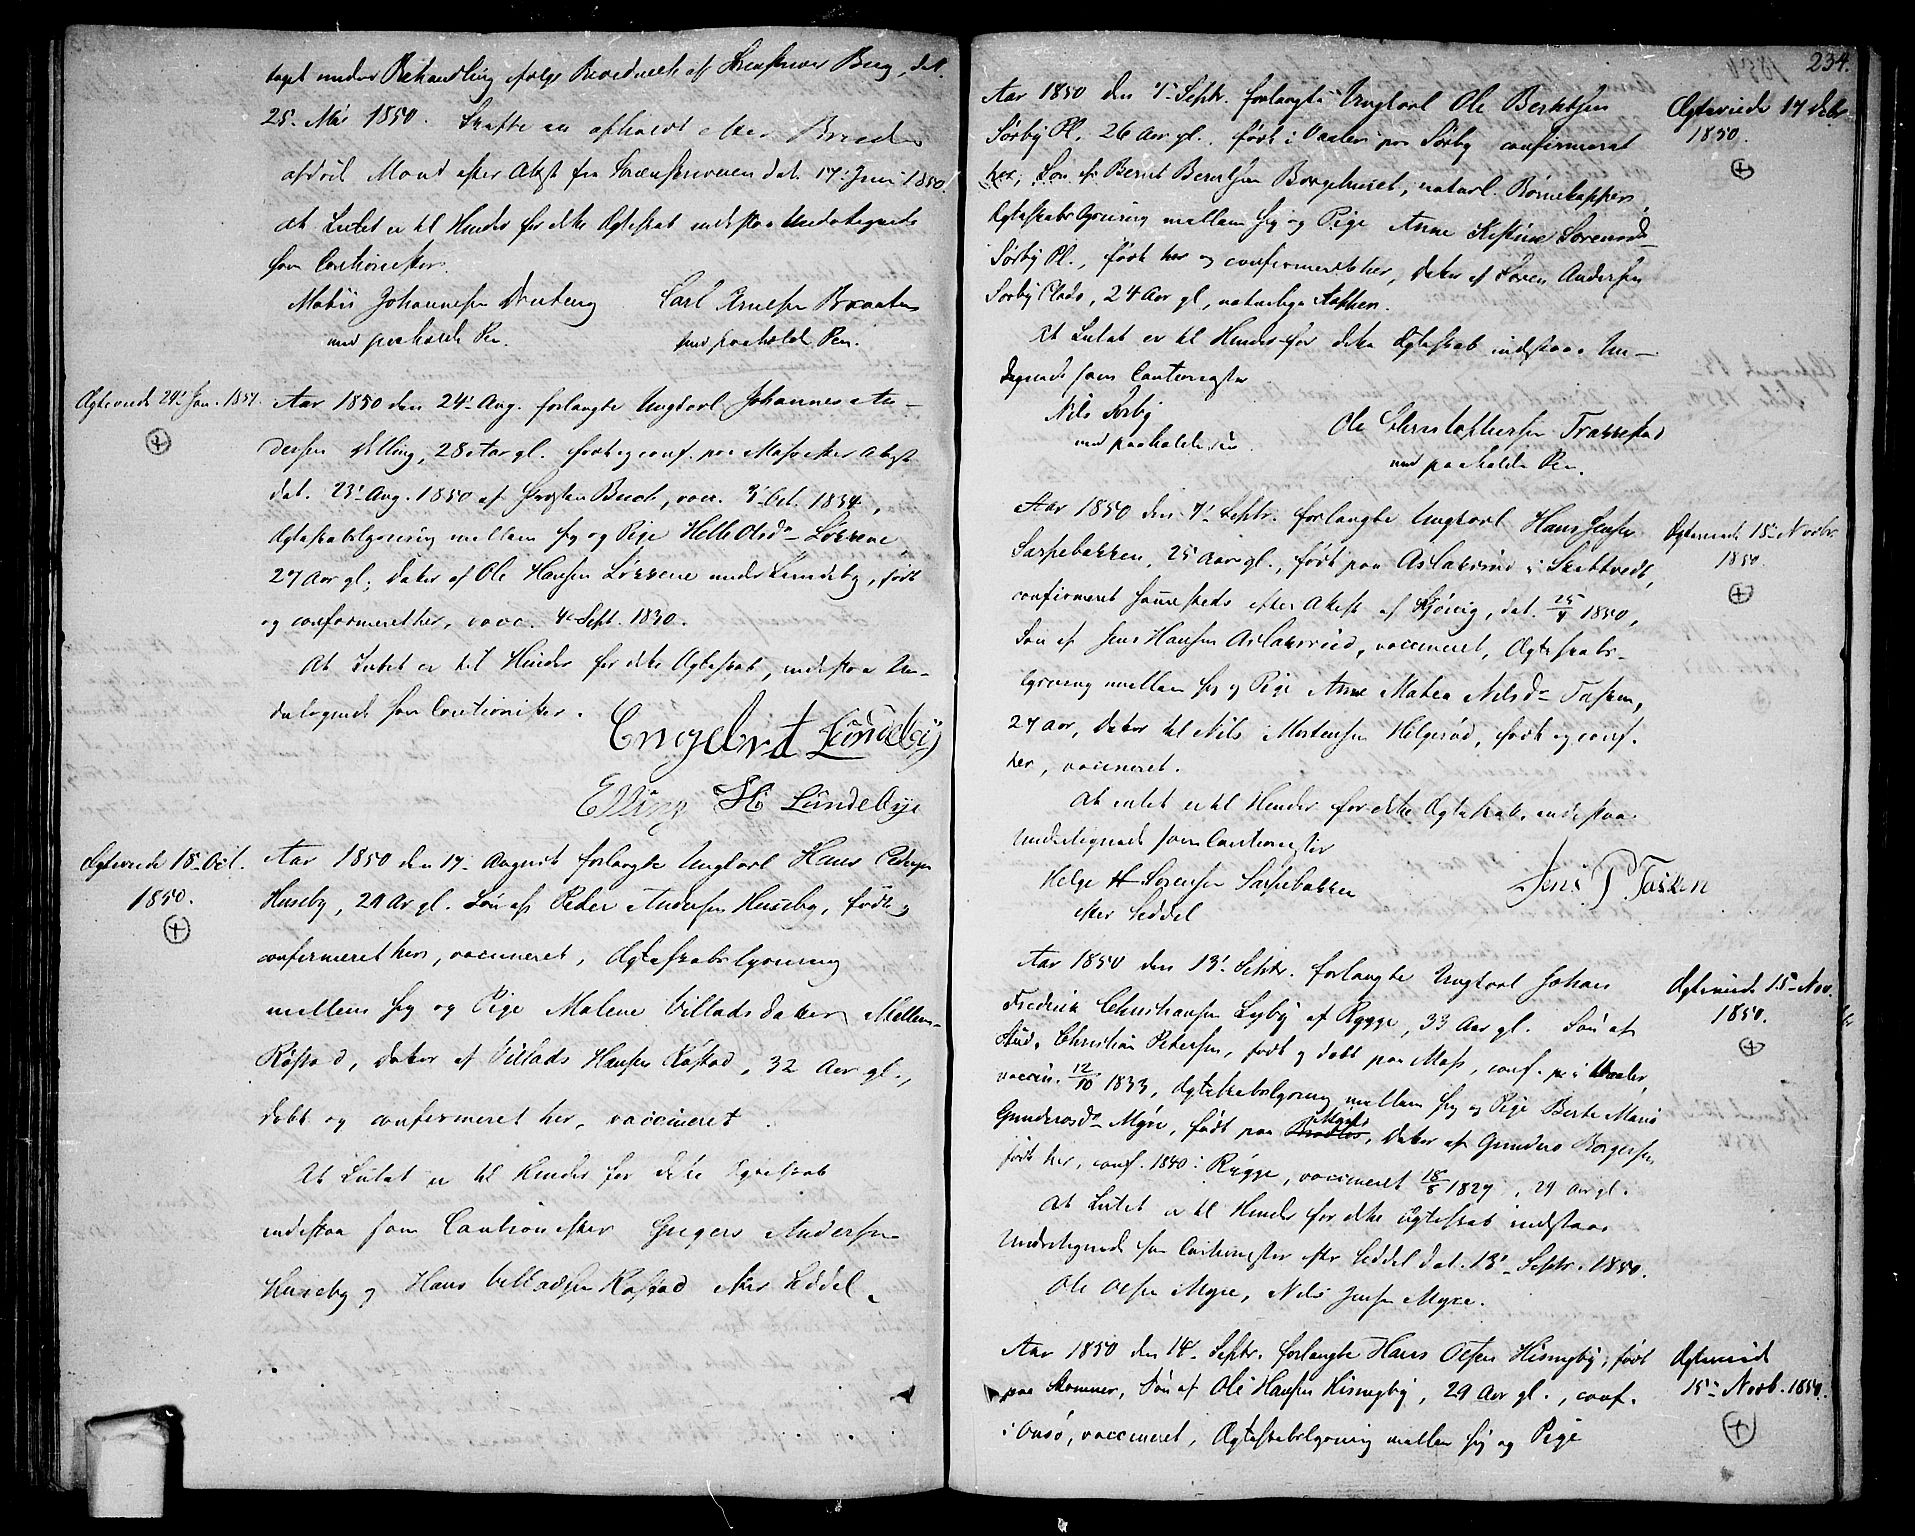 taget under Behandling ifølge Bevidnelse af Sorenskriver Berg, dat.
25. Mai 1850. Skifte er afholdt efter
afdöd Mand efter Attest fra Sorenskriveren dat. 17. Juni 1850.
At Intet er til Hinder for dette Ægteskab indestaa Undertegnede
som Cautionister.
Johannesen Carl Braaten
med paaholden Pen. med paaholden Pen.
Ægteviede 24. Jan. 1851.
Aar 1850 den 24. Aug. forlangte Ungkarl Johannes An-
dersen Dilling, 28 Aar gl. født og conf. paa Moss efter Attest
dat. 23. Aug. 1850 af Provsten Buch, vacc. 3. Oct. 1834,
Ægteskabslysning mellem sig og Pige Helle Olsd. Løkkene
27 Aar gl., Datter af Ole Hansen Løkkene under Lundeby, født
og confirmeret her, vacc. 4. Sept. 1830.
At Intet er til Hinder for dette Ægteskab, indestaa Un-
dertegnede som Cautionister.
Engebret Lundeby
Elling H Lundebye
Ægteviede 18. Oct.
1850.
Aar 1850 den 17. August forlangte Ungkarl Hans Pedersen
Huseby, 29 Aar gl. Søn af Peder Andersen Huseby, født og
confirmeret her, vaccineret, Ægteskabslysning
mellem sig og Pige Malene Villads Datter Mellem-
Røstad, Datter af Villads Hansen Røstad, 32 Aar gl.,
døbt og confirmeret her, vaccineret.
At Intet er til Hinder for dette Ægteskab
indestaa som Cautionister Gregers Andersen
Huseby og Hans Villadsen Røstad efter Seddel.
234.
Aar 1850 den 7. Septr. forlangte Ungkarl Ole Berntsen
Sørby Pl. 26 Aar gl., født i Vaaler paa Sørby confirmeret
her, Søn af Bernt Berntsen Borgehuset, naturl. Børnekopper,
Ægteskabslysning mellem sig og Pige Anne Kistine Sørensd.
Sørby Pl., født her og confirmeret her, Datter af Søren Andersen
Sørby Plads, 24 Aar gl., naturlige Kopper.
At Intet er til Hinder for dette Ægteskab indestaar Un-
dertegnede som Cautionister
Nils Sørby Ole Christophersen
med paaholden Pen. med paaholden Pen.
Ægteviede 17 Octbr
1850.
Aar 1850 den 7. Septr. forlangte Ungkarl Hans Jensen
Sarpebakken, 25 Aar gl., født paa Aslaksrud i Skibtvedt,
confirmeret sammesteds efter Attest af dat. 25/4 1850,
Søn af Jens Hansen Aslaksrud, vaccineret, Ægteskabs-
lysning mellem sig og Pige Anne Matea Nilsd. Tasken,
27 Aar, Datter til Nils Mortensen Helgerød, født og conf.
her, vaccineret.
At intet er til Hinder for dette Ægteskab indestaar
Undertegnede som Cautionister
Helge H Sørensen Sarpebakken Jens P. Tasken
efter Seddel
Ægteviede 15. Novbr.
1850.
Aar 1850 den 13. Septr. forlangte Ungkarl Johan
Fredrik Christiansen Lyby af Rygge, 33 Aar gl. Søn af
Stud. Christian Petersen, født og døbt paa Moss, conf. i Vaaler,
vaccin. 12/10 1833, Ægteskabslysning mellem sig og Pige Berte Marie
Gundersd. Myre, født paa Myre, Datter af Gunder Borgersen
født her, conf. 1840 i Rygge, vaccineret 18/8 1827, 29 Aar gl.
At Intet er til Hinder for dette Ægteskab indstaar
Undertegnede som Cautionister efter Seddel dat. 13. Septr. 1850.
Ole Olsen Myre, Nils Jensen Myre.
Ægteviede 15. Nov.
1850.
Aar 1850 den 14. Septr. forlangte Hans Olsen Hisingby, født
paa Skomner, Søn af Ole Hansen Hisingby, 29 Aar gl., conf.
i Onsø, vaccineret, Ægteskabslysning mellem sig og Pige
Ægteviede
15. Novb. 1850.